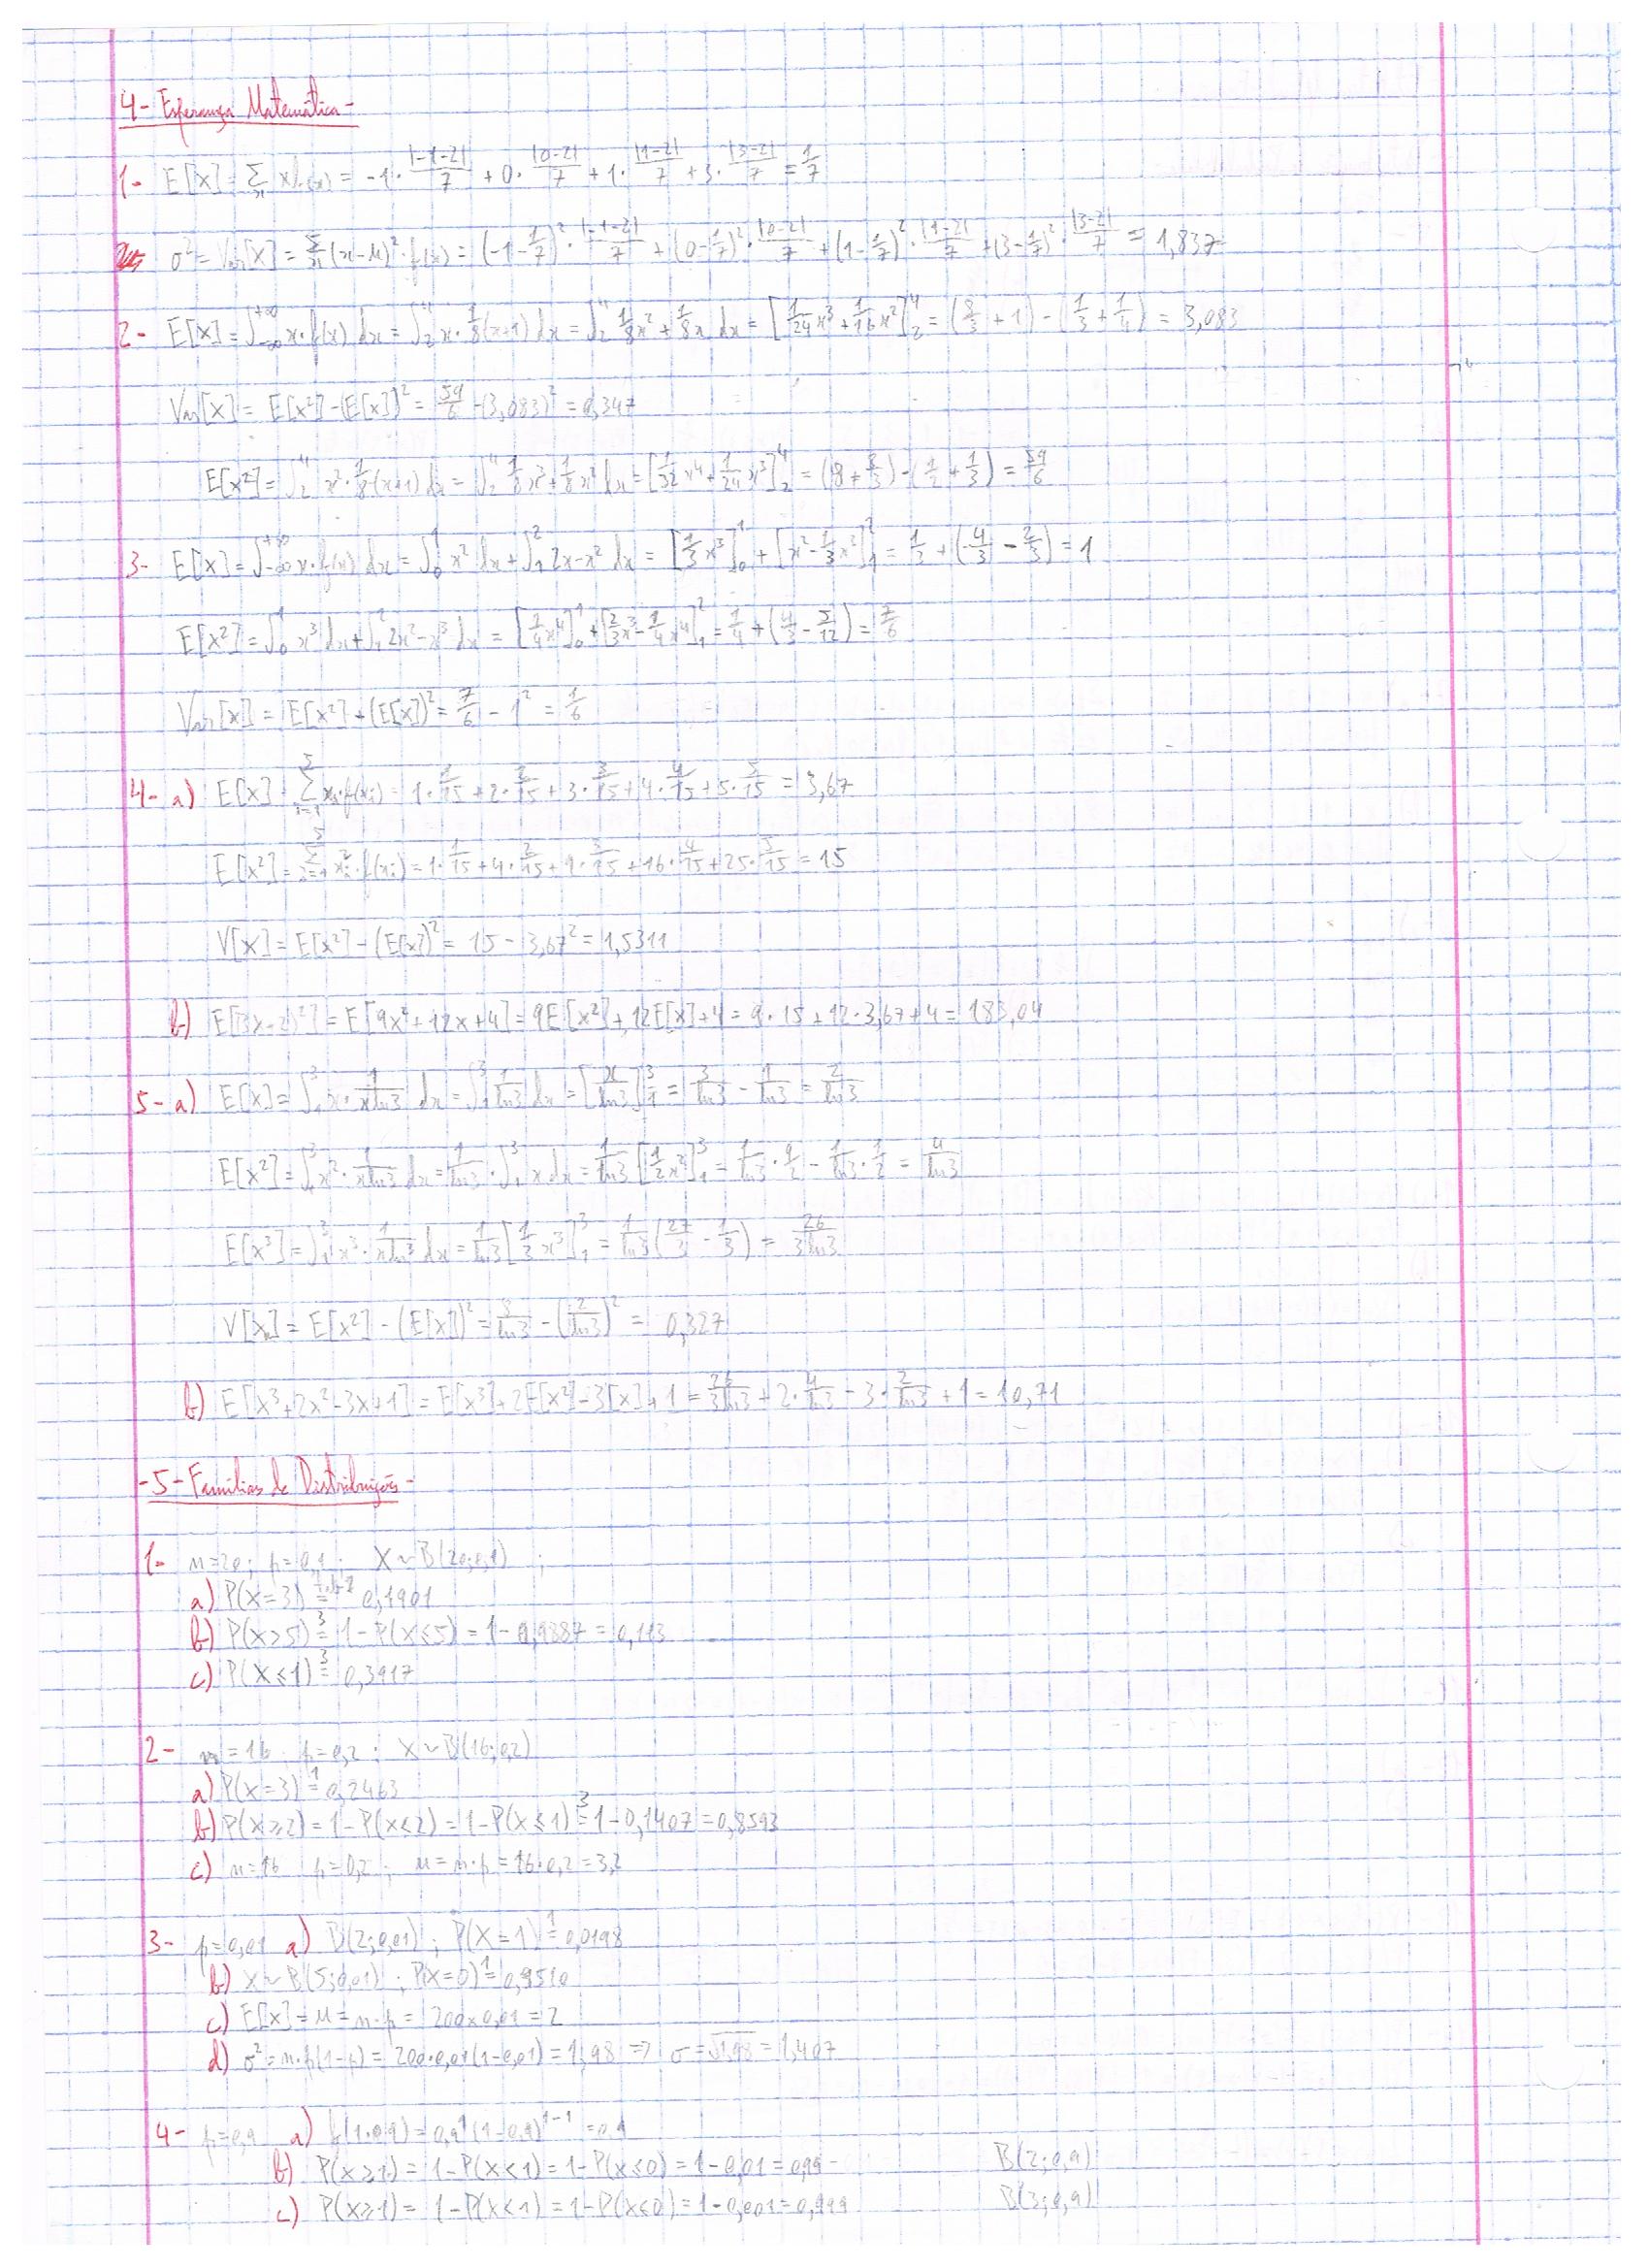 4- Esperança Matemática -
1- E[X] = Σ x f(x) = -1 · |-1-2|/7 + 0 · |0-2|/7 + 1 · |1-2|/7 + 3 · |3-2|/7 = 1/7
σ² = Var[X] = Σ (x-μ)² · f(x) = (-1-1/7)² · |-1-2|/7 + (0-1/7)² · |0-2|/7 + (1-1/7)² · |1-2|/7 + (3-1/7)² · |3-2|/7 = 1,837
2- E[X] = ∫_{-∞}^{+∞} x · f(x) dx = ∫_2^4 x · 1/8 (x+1) dx = ∫_2^4 1/8 x² + 1/8 x dx = [1/24 x³ + 1/16 x²]_2^4 = (8/3 + 1) - (1/3 + 1/4) = 3,083
Var[X] = E[X²] - (E[X])² = 59/6 - (3,083)² = 0,347
E[X²] = ∫_2^4 x² · 1/8 (x+1) dx = ∫_2^4 1/8 x³ + 1/8 x² dx = [1/32 x⁴ + 1/24 x³]_2^4 = (8 + 8/3) - (1/2 + 1/3) = 59/6
3- E[X] = ∫_{-∞}^{+∞} x · f(x) dx = ∫_0^1 x² dx + ∫_1^2 2x-x² dx = [1/3 x³]_0^1 + [x² - 1/3 x²]_1^2 = 1/3 + (4/3 - 2/3) = 1
E[X²] = ∫_0^1 x³ dx + ∫_1^2 2x²-x³ dx = [1/4 x⁴]_0^1 + [2/3 x³ - 1/4 x⁴]_1^2 = 1/4 + (4/3 - 5/12) = 7/6
Var[X] = E[X²] - (E[X])² = 7/6 - 1² = 1/6
4- a) E[X] = Σ_{i=1}^5 xi · f(xi) = 1 · 1/15 + 2 · 2/15 + 3 · 3/15 + 4 · 4/15 + 5 · 5/15 = 3,67
E[X²] = Σ_{i=1}^5 xi² · f(xi) = 1 · 1/15 + 4 · 2/15 + 9 · 3/15 + 16 · 4/15 + 25 · 5/15 = 15
V[X] = E[X²] - (E[X])² = 15 - 3,67² = 1,5311
b) E[(3X+2)²] = E[9X² + 12X + 4] = 9E[X²] + 12E[X] + 4 = 9 · 15 + 12 · 3,67 + 4 = 183,04
5- a) E[X] = ∫_1^3 x · 1/(x ln3) dx = ∫_1^3 1/ln3 dx = [x/ln3]_1^3 = 3/ln3 - 1/ln3 = 2/ln3
E[X²] = ∫_1^3 x² · 1/(x ln3) dx = 1/ln3 · ∫_1^3 x dx = 1/ln3 [1/2 x²]_1^3 = 1/ln3 · 9/2 - 1/ln3 · 1/2 = 4/ln3
E[X³] = ∫_1^3 x³ · 1/(x ln3) dx = 1/ln3 [1/3 x³]_1^3 = 1/ln3 (27/3 - 1/3) = 26/(3 ln3)
V[X] = E[X²] - (E[X])² = /ln3 - (2/ln3)² = 0,327
b) E[X³+2X²-3X+1] = E[X³] + 2E[X²] - 3[X] + 1 = 26/(3 ln3) + 2 · 4/ln3 - 3 · 2/ln3 + 1 = 10,71
-5- Famílias de Distribuições -
1- n=20 ; p=0,1 ; X~B(20;0,1)
a) P(X=3) = 0,1901
b) P(X>5) =³ 1-P(X≤5) = 1-0,9887 = 0,113
c) P(X≤1) =³ 0,3917
2- n=16 p=0,2 ; X~B(16;0,2)
a) P(X=3) =¹ 0,2463
b) P(X≥2) = 1-P(X<2) = 1-P(X≤1) =³ 1-0,1407 = 0,8593
c) n=16 p=0,2 ; μ=n·p = 16·0,2 = 3,2
3- p=0,01 a) B(2;0,01) ; P(X=1) =¹ 0,0198
b) X~B(5;0,01) ; P(X=0) =¹ 0,9510
c) E[X] = μ = n·p = 200×0,01 = 2
d) σ² = n·p(1-p) = 200·0,01(1-0,01) = 1,98 ⇒ σ = √1,98 = 1,407
4- p=0,9 a) f(1;0,9) = 0,9¹(1-0,9)^{1-1} = 0,9
b) P(X≥1) = 1-P(X<1) = 1-P(X≤0) = 1-0,01 = 0,99 B(2;0,9)
c) P(X≥1) = 1-P(X<1) = 1-P(X≤0) = 1-0,001 = 0,999 B(3;0,9)